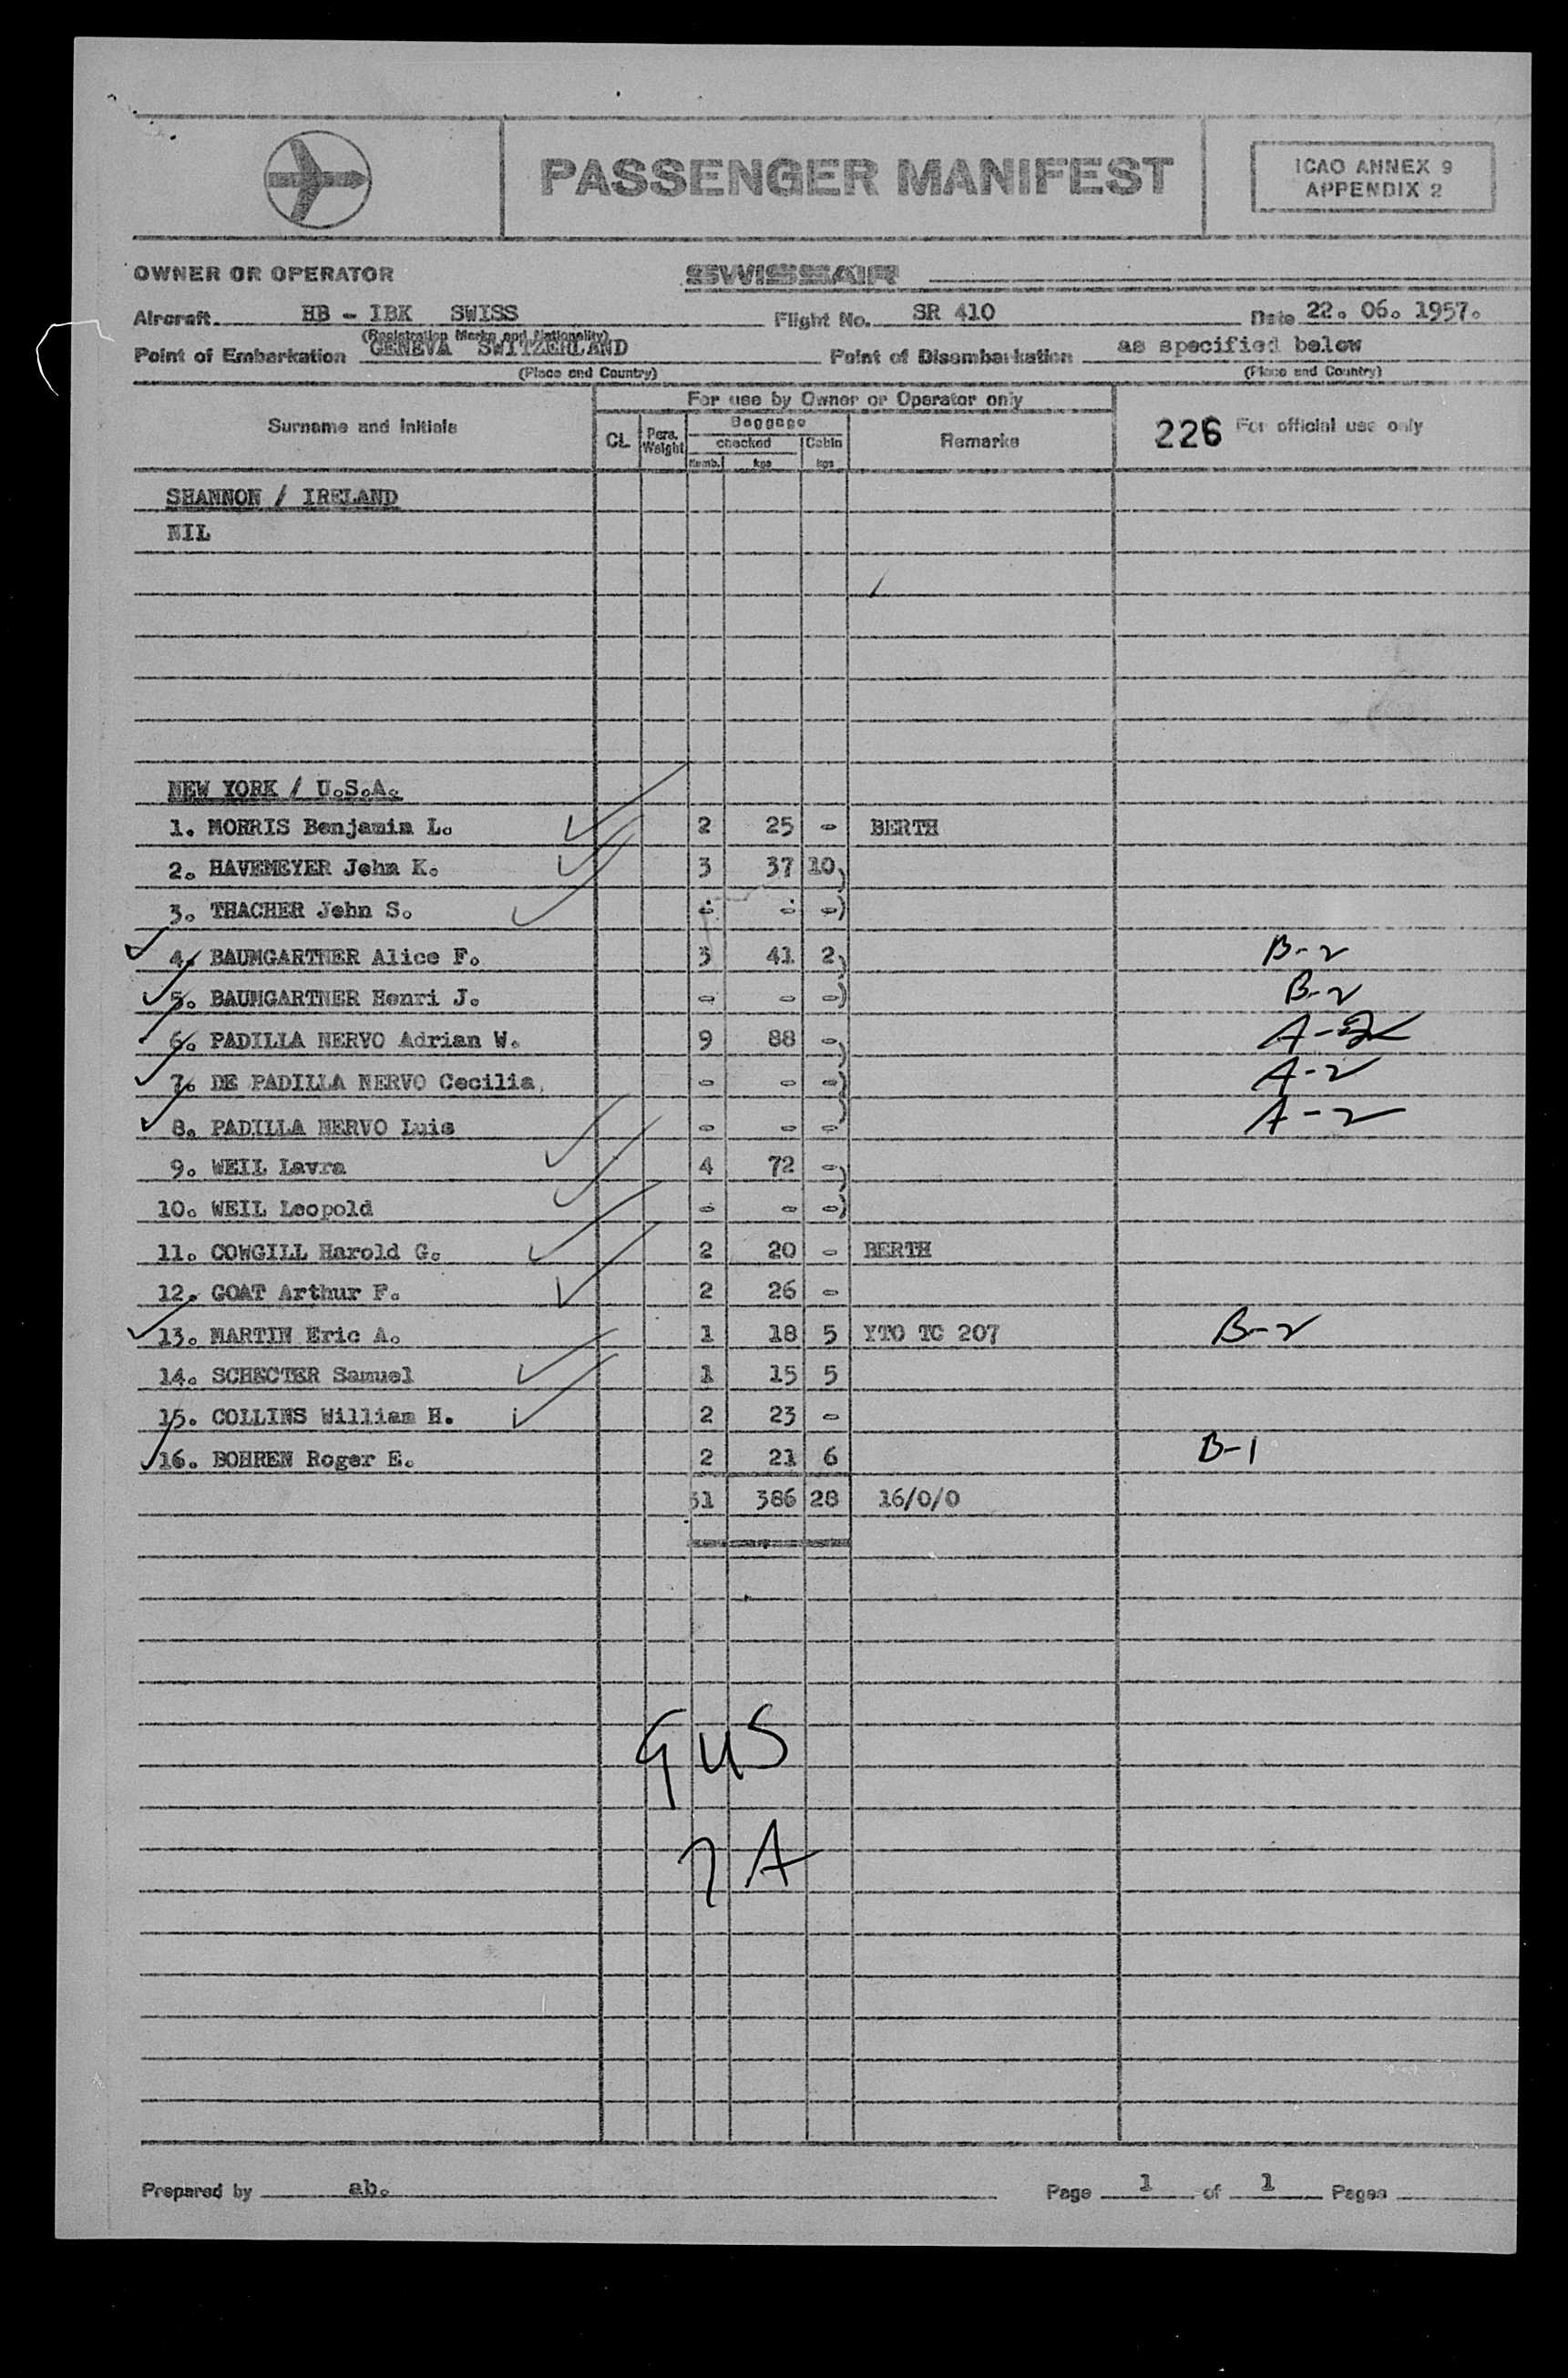 PASSENGER MANIFEST
ICAO ANNEX 9
APPENDIX 2
OWNER OR OPERATOR SWISSAIR
Aircraft HB - IBK SWISS Flight No. SR 410 Date 22. 06. 1957.
(Registration Marks and Nationality)
Point of Embarkation GENEVA SWITZERLAND Point of Disembarkation as specified below
(Place and Country) (Place and Country)
For use by Owner or Operator only
Surname and Initials CL. Pers. Weight Baggage checked Numb. kgs Cabin kgs Remarks 226 For official use only
SHANNON / IRELAND
NIL
NEW YORK / U.S.A.
1. MORRIS Benjamin L. 2 25 - BERTH
2. HAVEMEYER John K. 3 37 10)
3. THACHER John S. - - -)
4. BAUMGARTNER Alice F. 3 41 2) B-2
5. BAUMGARTNER Henri J. - - -) B-2
6. PADILLA NERVO Adrian W. 9 88 -) A-2
7. DE PADILLA NERVO Cecilia - - -) A-2
8. PADILLA NERVO Luis - - -) A-2
9. WEIL Lavra 4 72 -)
10. WEIL Leopold - - -)
11. COWGILL Harold G. 2 20 - BERTH
12. GOAT Arthur F. 2 26 -
13. MARTIN Eric A. 1 18 5 YTO TC 207 B-2
14. SCHECTER Samuel 1 15 5
15. COLLINS William H. 2 23 -
16. BOHREN Roger E. 2 21 6 B-1
31 386 28 16/0/0
9 US
7 A
Prepared by ab. Page 1 of 1 Pages